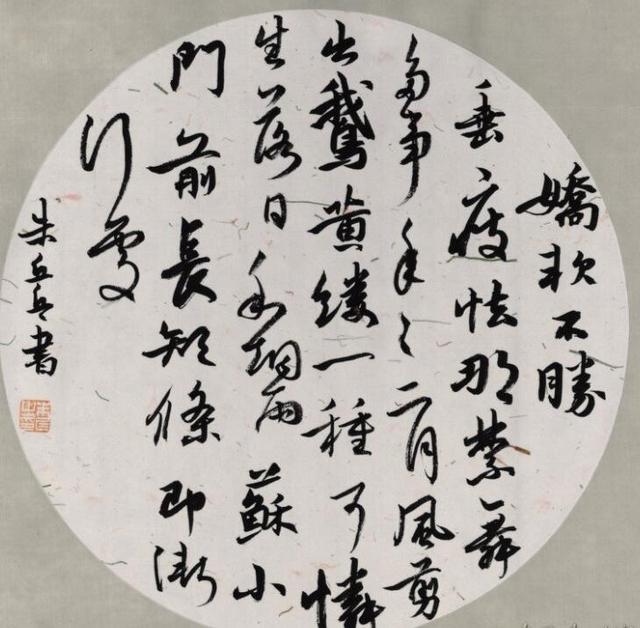 嬌軟不勝
垂瘦怯那禁舞
多事年々二月風剪
出鵝黃縷一種可憐
生落日和烟雨蘇小
門前長短條即漸
行處
朱丘兵書